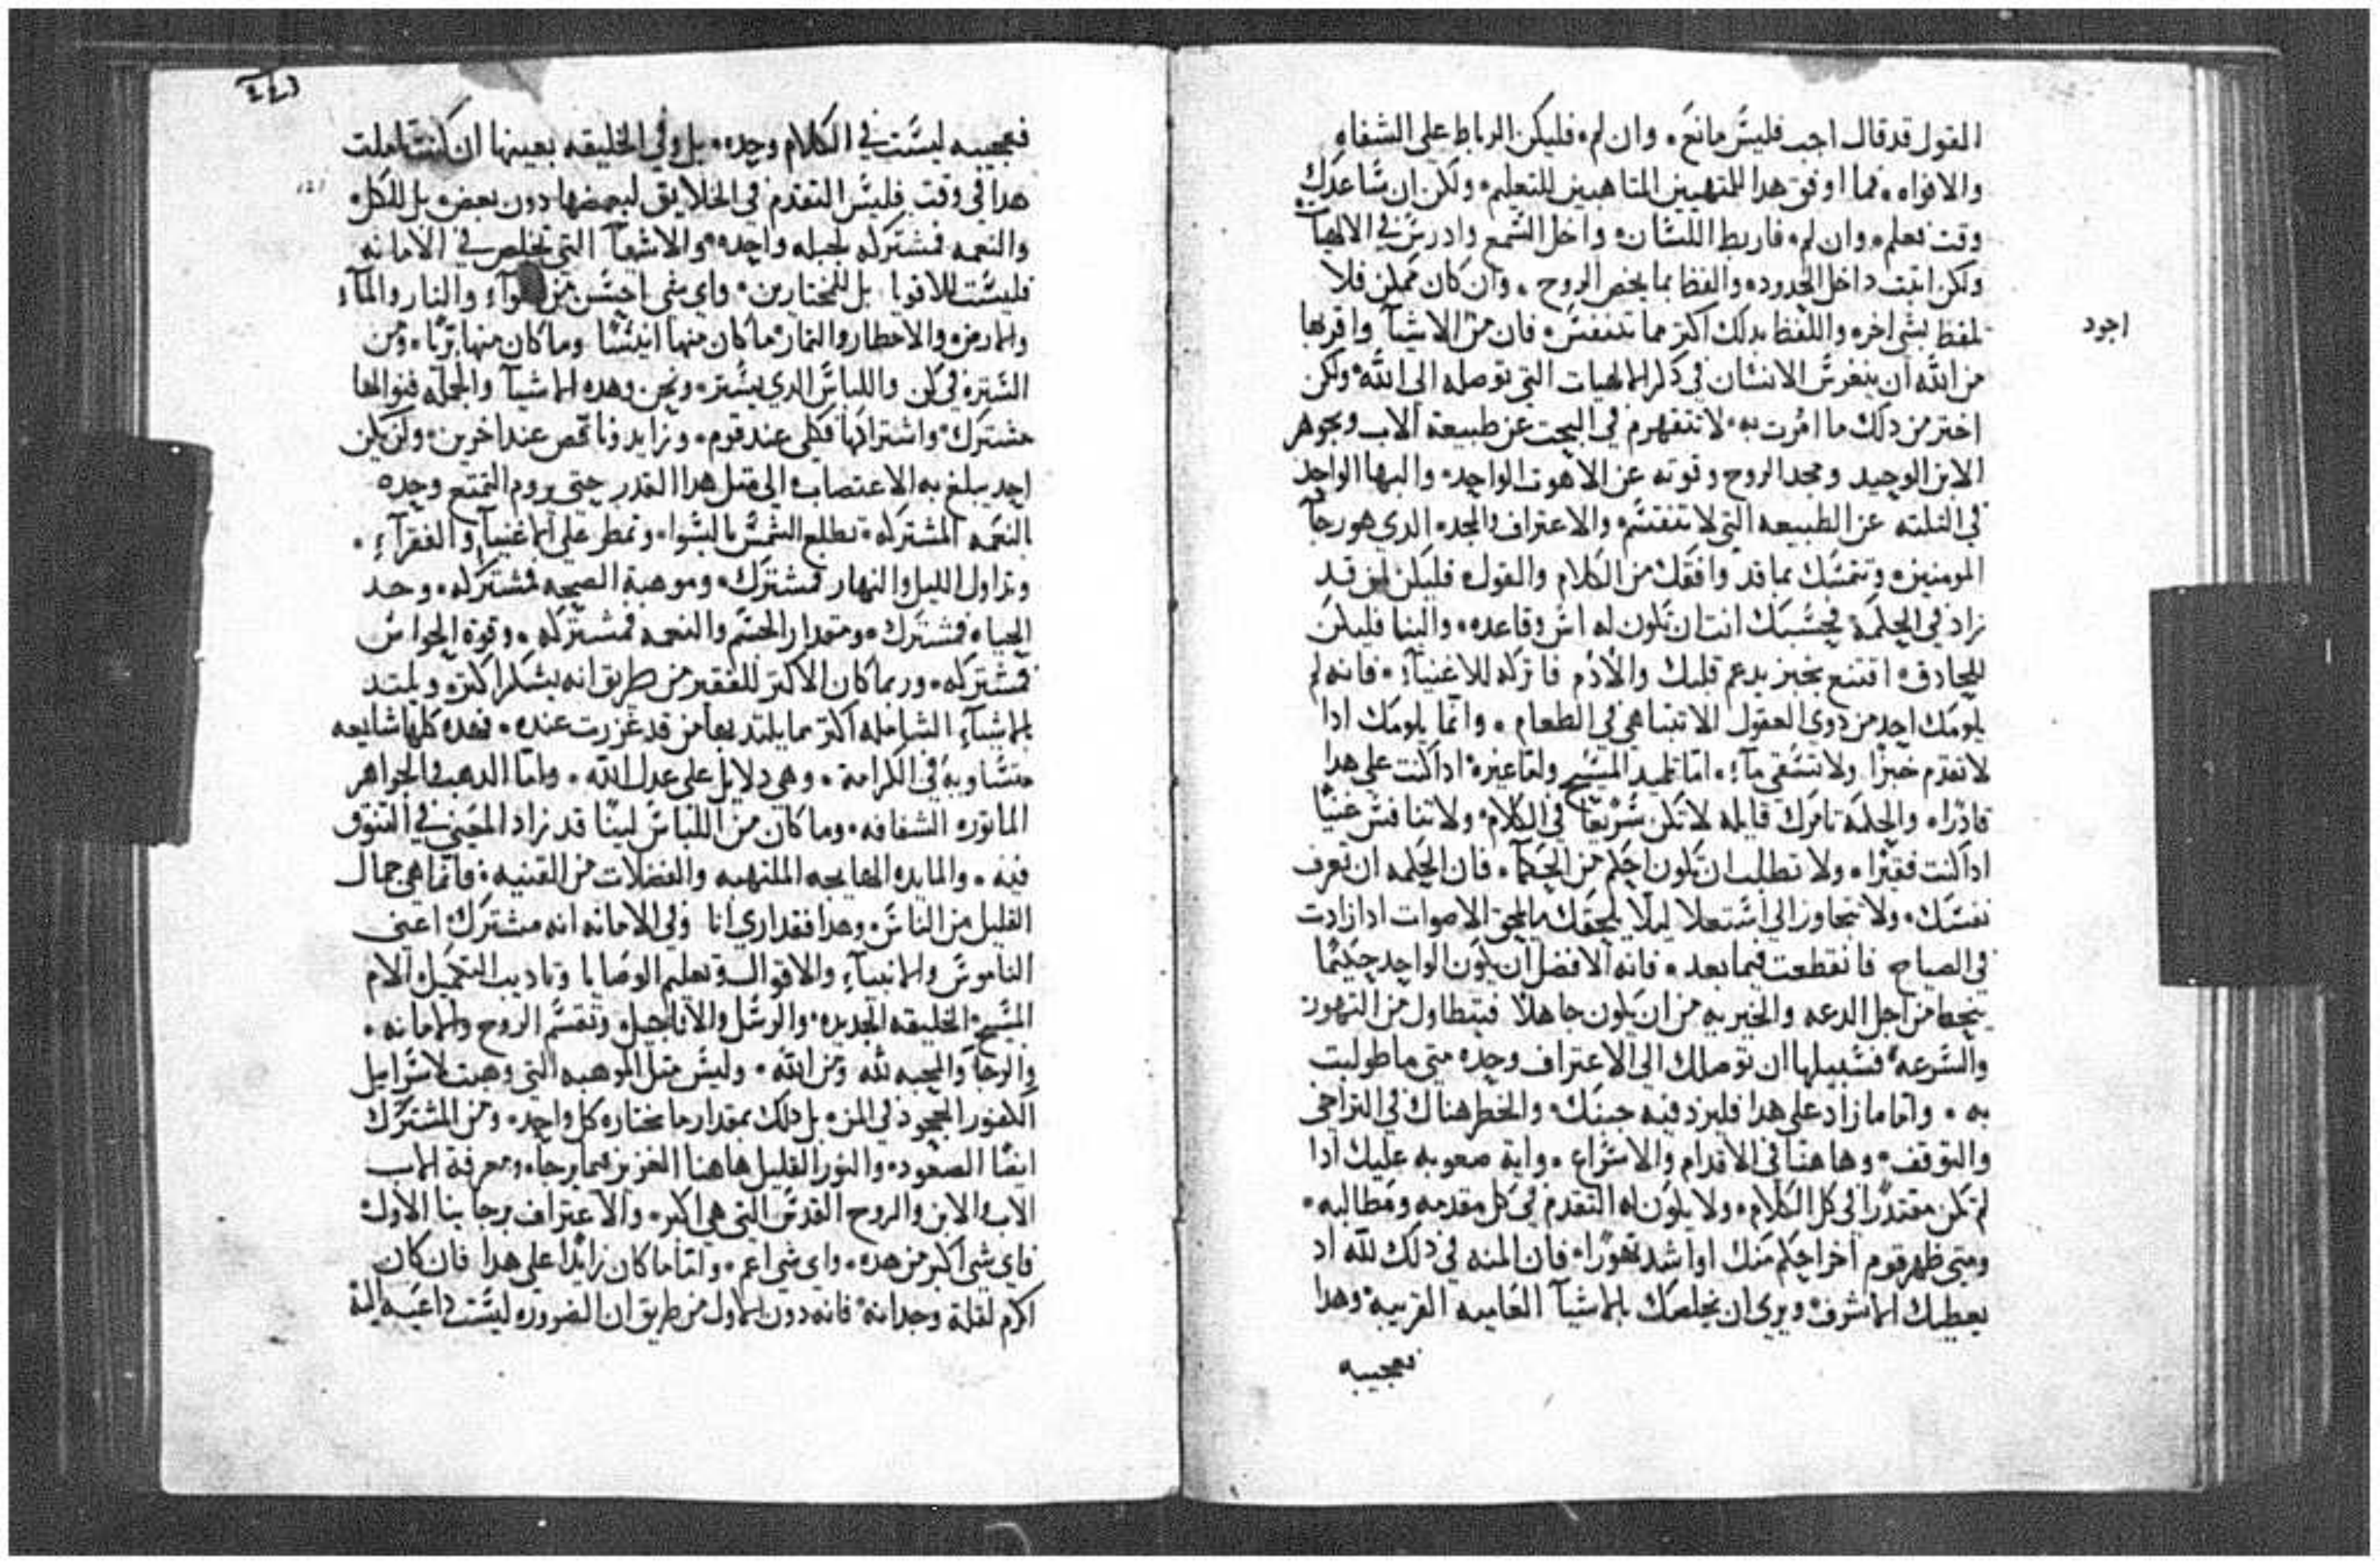 المقول قد قال اجب فليس مانع. وان لم فليكن الرباط على الشفاه
والافواه. فما اوفق هدا للمتهيين المتاهبين للتعليم. ولكن ان ساعدك
وقت تعلم. وان لم فاربط اللسان. واخل السمع وادرس في الالهيات
ولكن اتبت داخل الحدود. والفظ بما يخص الروح. وان كان ممكن فلا
تلفظ بشي اخر. واللفظ بدلك اكتر مما تتنفس. فان من الاشيآ واقربها
اجود
من الله ان يتغرس الانسان في دكر الالهيات التي توصله الى الله. ولكن
اختر من دلك ما امرت به. لا تتفهم في البحت عن طبيعة الاب وجوهر
الابن الوحيد ومجد الروح وقوته عن الاهوت الواحد. والبها الواحد
في التلته عن الطبيعه التي لا تنقسم والاعتراف والمجد. الدي هو رجآ
المومنين. وتتمسك بما قد وافقك من الكلام والقول. فليكن لمن قد
زاد في الحكمة فحسبك انت ان تكون له اس وقاعده. والبنا فليكن
للحادق. اقتنع بخبز يدعم قلبك والأدم فاتركه للاغنيآ. فانه لم
يلومك احد من دوي العقول الا تتباهى في الطعام. وانما يلومك ادا
لا تقدم خبزًا ولا تسقى مآء. اما تلميد المسيح واما غيره ادا كنت على هدا
قادرًا. والحكمه تامرك قايله لا تكن سريعًا في الكلام. ولا تنافس غنيًا
ادا كنت فقيرًا. ولا تطلب ان تكون احكم من الحكمآ. فان الحكمه ان تعرف
نفسك. ولا تتجاوز الى استعلا ليلا يلحقك ما يلحق الاصوات ادا زادت
في الصياح فانقطعت فيما بعد. فانه الافضل ان يكون الواحد حكيمًا
ينحط من اجل الدعه والخيريه من ان يكون جاهلاً فيتطاول من التهور
والسرعه. فسبيلها ان توصلك الى الاعتراف وحده متى ما طولبت
به. واما ما زاد على هدا فليزد فيه جبنك. والخطر هناك في التراخى
والتوقف. وهاهنا في الاقدام والاسراع. واية صعوبه عليك ادا
لم تكن مقتدرًا في كل الكلام. ولا يكون له التقدم في كل مقدمه ومطالبه.
ومتى ظهر قوم اخر احكم منك او اشد تهورًا. فان المنه في دلك لله اد
يعطيك الاشرف. ويرى ان يخلصك بالاشيآ القريبه. وهدا
فعجيبه
فعجيبه ليست في الكلام وحده. بل وفي الخليقه بعينها ان كنت تاملت
هدا في وقت. فليس التقدم في الخلايق لبعضها دون بعض. بل للكل.
والنعمه فمشتركه لجبله واحده. والاشيآ التي تخلص في الامانه
فليست للاقويا بل للمختارين. واي شي احسن من والنار والمآء
والارض. والامطار والتمار. ما كان منها انيسًا وما كان منها بريًا. ومن
الستره في كن واللباس الدي يستر. ونحن وهده الاشيآ والجمله فنوالها
مشترك. واشتراكها فكلي عند قوم. وزايد وناقص عند اخرين. ولن يكن
احد يبلغ به الاغتصاب الى متل هدا القدر حتى يروم التمتع وحده
بالنعمه المشتركه. تطلع الشمس بالسوا. وتمطر على الاغنيآ والفقرآء.
وتداول الليل والنهار فمشترك. وموهبة الصحه فمشتركه. وحد
الحياه فمشترك. ومقدار الجسم والنعمه فمشتركه. وقوة الحواس
فمشتركه. وربما كان الاكتر للفقير من طريق انه يشكر اكتر. ويلتد
بالاشيآء الشامله اكتر مما يلتد بها من قد غزرت عنده. فهده كلها شايعه
متساويه في الكرامة. وهي دلايل على عدل الله. واما الدهب والجواهر
الماتوره الشفافه. وما كان من اللباس لينًا قد زاد المحيني في التنوق
فيه. والمايده الهايجه الملتهبه والفضلات من القنيه. فانما هي جمال
القليل من الناس. وهدا فقد ارى انا وفي الامانه انه مشترك. اعني
الناموس والانبيآء والاقوال. وتعليم الوصايا وتاديب التكميل. الام
المسيح الخليقه الجديده. والرسل والاناجيل. وتقسم الروح والامانه.
والرجآ والمحبه لله ومن الله. وليس متل الموهبه التي وهبت لاسراييل
الكفور الجحود في المن. بل دلك بمقدار ما يختاره كل واحد. ومن المشترك
ايضًا الصعود. والنور القليل هاهنا الغزيز فيما يرجا. ومعرفة الاب
الاب والابن والروح القدس التي هي اكبر. والاعتراف برجاينا الاول
فاي شي اكبر من هده. واي شي اعم. واما ما كان زايدًا على هدا فان كان
اكرم لقلة وجدانه. فانه دون الاول من طريق ان الضروره ليست داعيه اليه